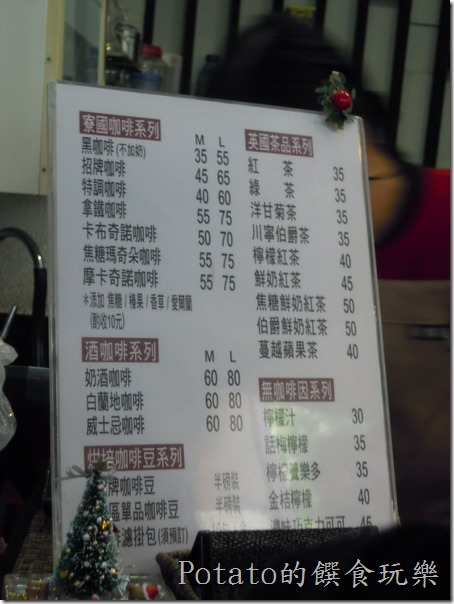 寮國咖啡系列 M L
黑咖啡(不加奶) 35 55
招牌咖啡 45 65
特調咖啡 40 60
拿鐵咖啡 55 75
卡布奇諾咖啡 50 70
焦糖瑪奇朵咖啡 55 75
摩卡奇諾咖啡 55 75
*添加 焦糖/榛果/香草/愛爾蘭
(酌收10元)
酒咖啡系列 M L
奶酒咖啡 60 80
白蘭地咖啡 60 80
威士忌咖啡 60 80
烘培咖啡豆系列
牌咖啡豆 半磅裝
區單品咖啡豆 半磅裝
濾掛包(須預訂)
英國茶品系列
紅 茶 35
綠 茶 35
洋甘菊茶 35
川寧伯爵茶 35
檸檬紅茶 40
鮮奶紅茶 45
焦糖鮮奶紅茶 50
伯爵鮮奶紅茶 50
蔓越蘋果茶 40
無咖啡因系列
檸檬汁 30
話梅檸檬 35
檸檬養樂多 35
金桔檸檬 40
濃味巧克力可可 45
Potato的饌食玩樂